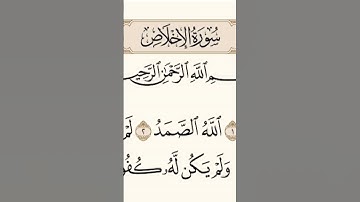 سُورَةُ الإِخْلَاصِ
ٱللَّهِ ٱلرَّحْمَٰنِ
١ ٱللَّهُ ٱلصَّمَدُ ٢ لَمْ
وَلَمْ يَكُن لَّهُۥ